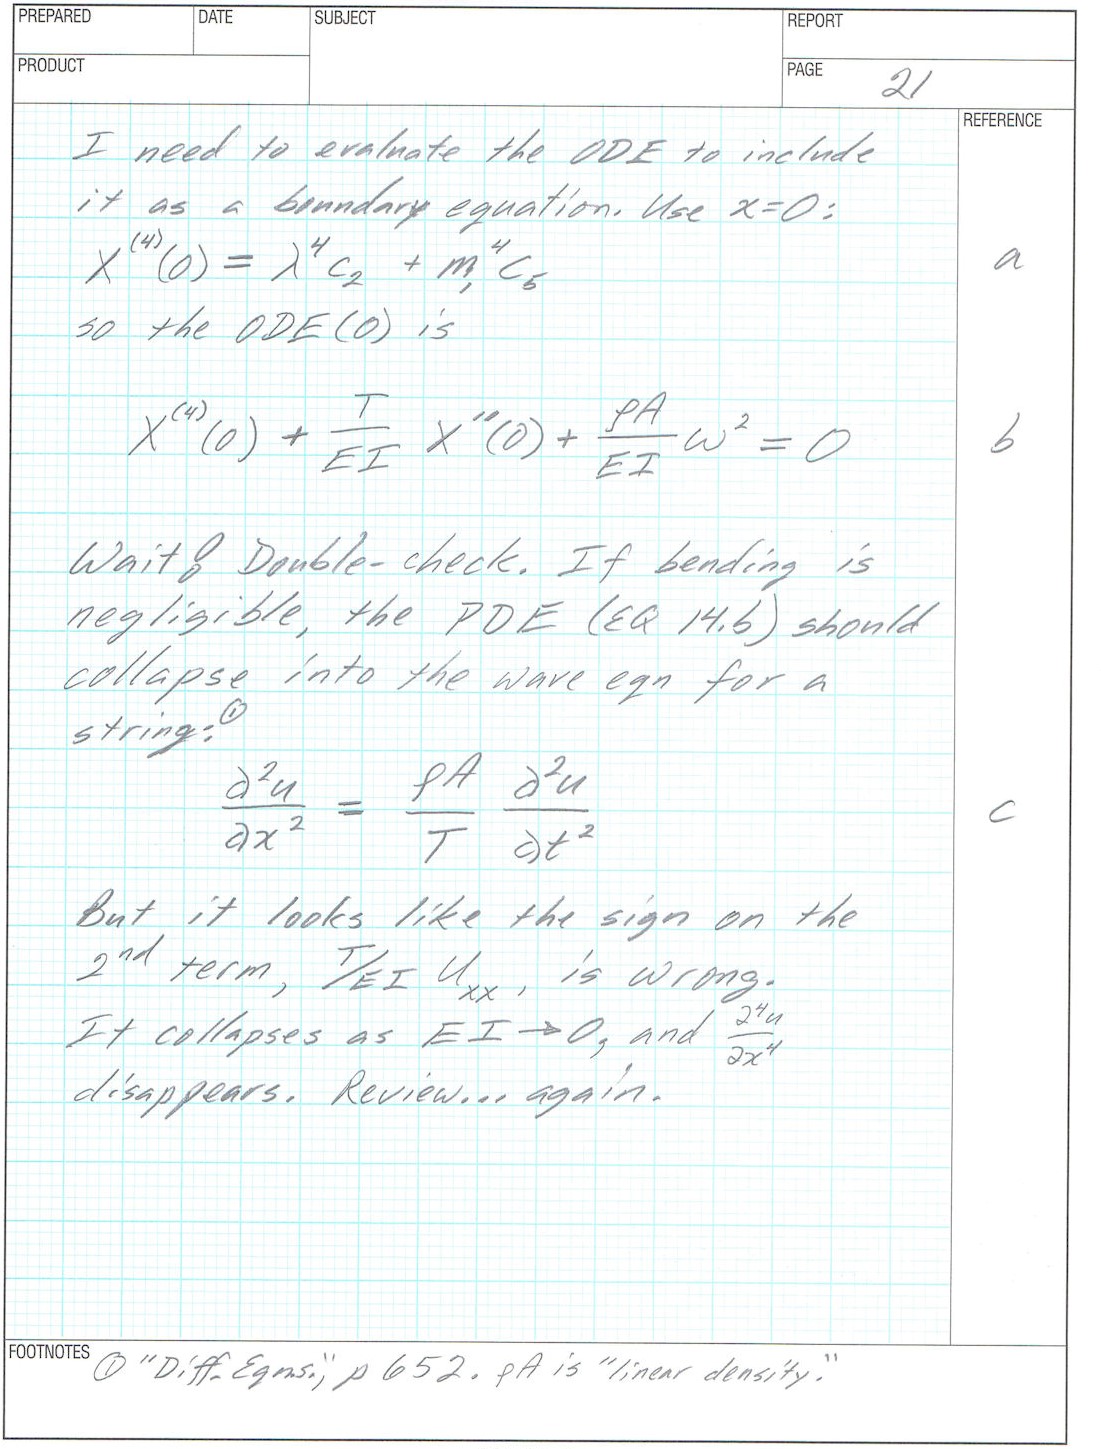 PREPARED DATE SUBJECT REPORT
PRODUCT PAGE 21
REFERENCE
I need to evaluate the ODE to include
it as a boundary equation. Use x=0:
X⁽⁴⁾(0) = λ⁴c₂ + m₁⁴c₅ a
so the ODE(0) is
X⁽⁴⁾(0) + T/EI X''(0) + ρA/EI ω² = 0 b
Wait! Double-check. If bending is
negligible, the PDE (EQ 14.b) should
collapse into the wave eqn for a
string:①
∂²u/∂x² = ρA/T ∂²u/∂t² c
But it looks like the sign on the
2nd term, T/EI Uxx, is wrong.
It collapses as EI→0, and ∂⁴u/∂x⁴
disappears. Review... again.
FOOTNOTES ① "Diff. Eqns.", p 652. ρA is "linear density."